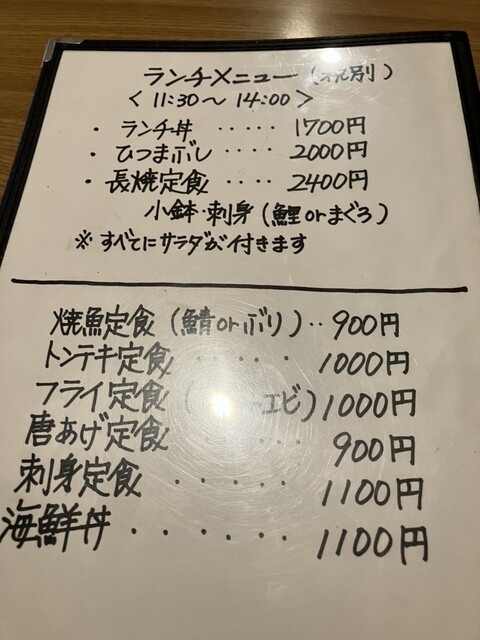 ランチメニュー (税別)
< 11:30〜 14:00 >
・ ランチ丼 ・・・・・ 1700円
・ ひつまぶし ・・・・・ 2000円
・ 長焼定食 ・・・・ 2400円
小鉢・刺身 (鯉orまぐろ)
※ すべてにサラダが付きます
焼魚定食 (鯖orぶり)・・ 900円
トンテキ定食 ・・・・・ 1000円
フライ定食 ( エビ) 1000円
唐あげ定食 ・・・・・ 900円
刺身定食 ・・・・・ 1100円
海鮮丼 ・・・・・・ 1100円